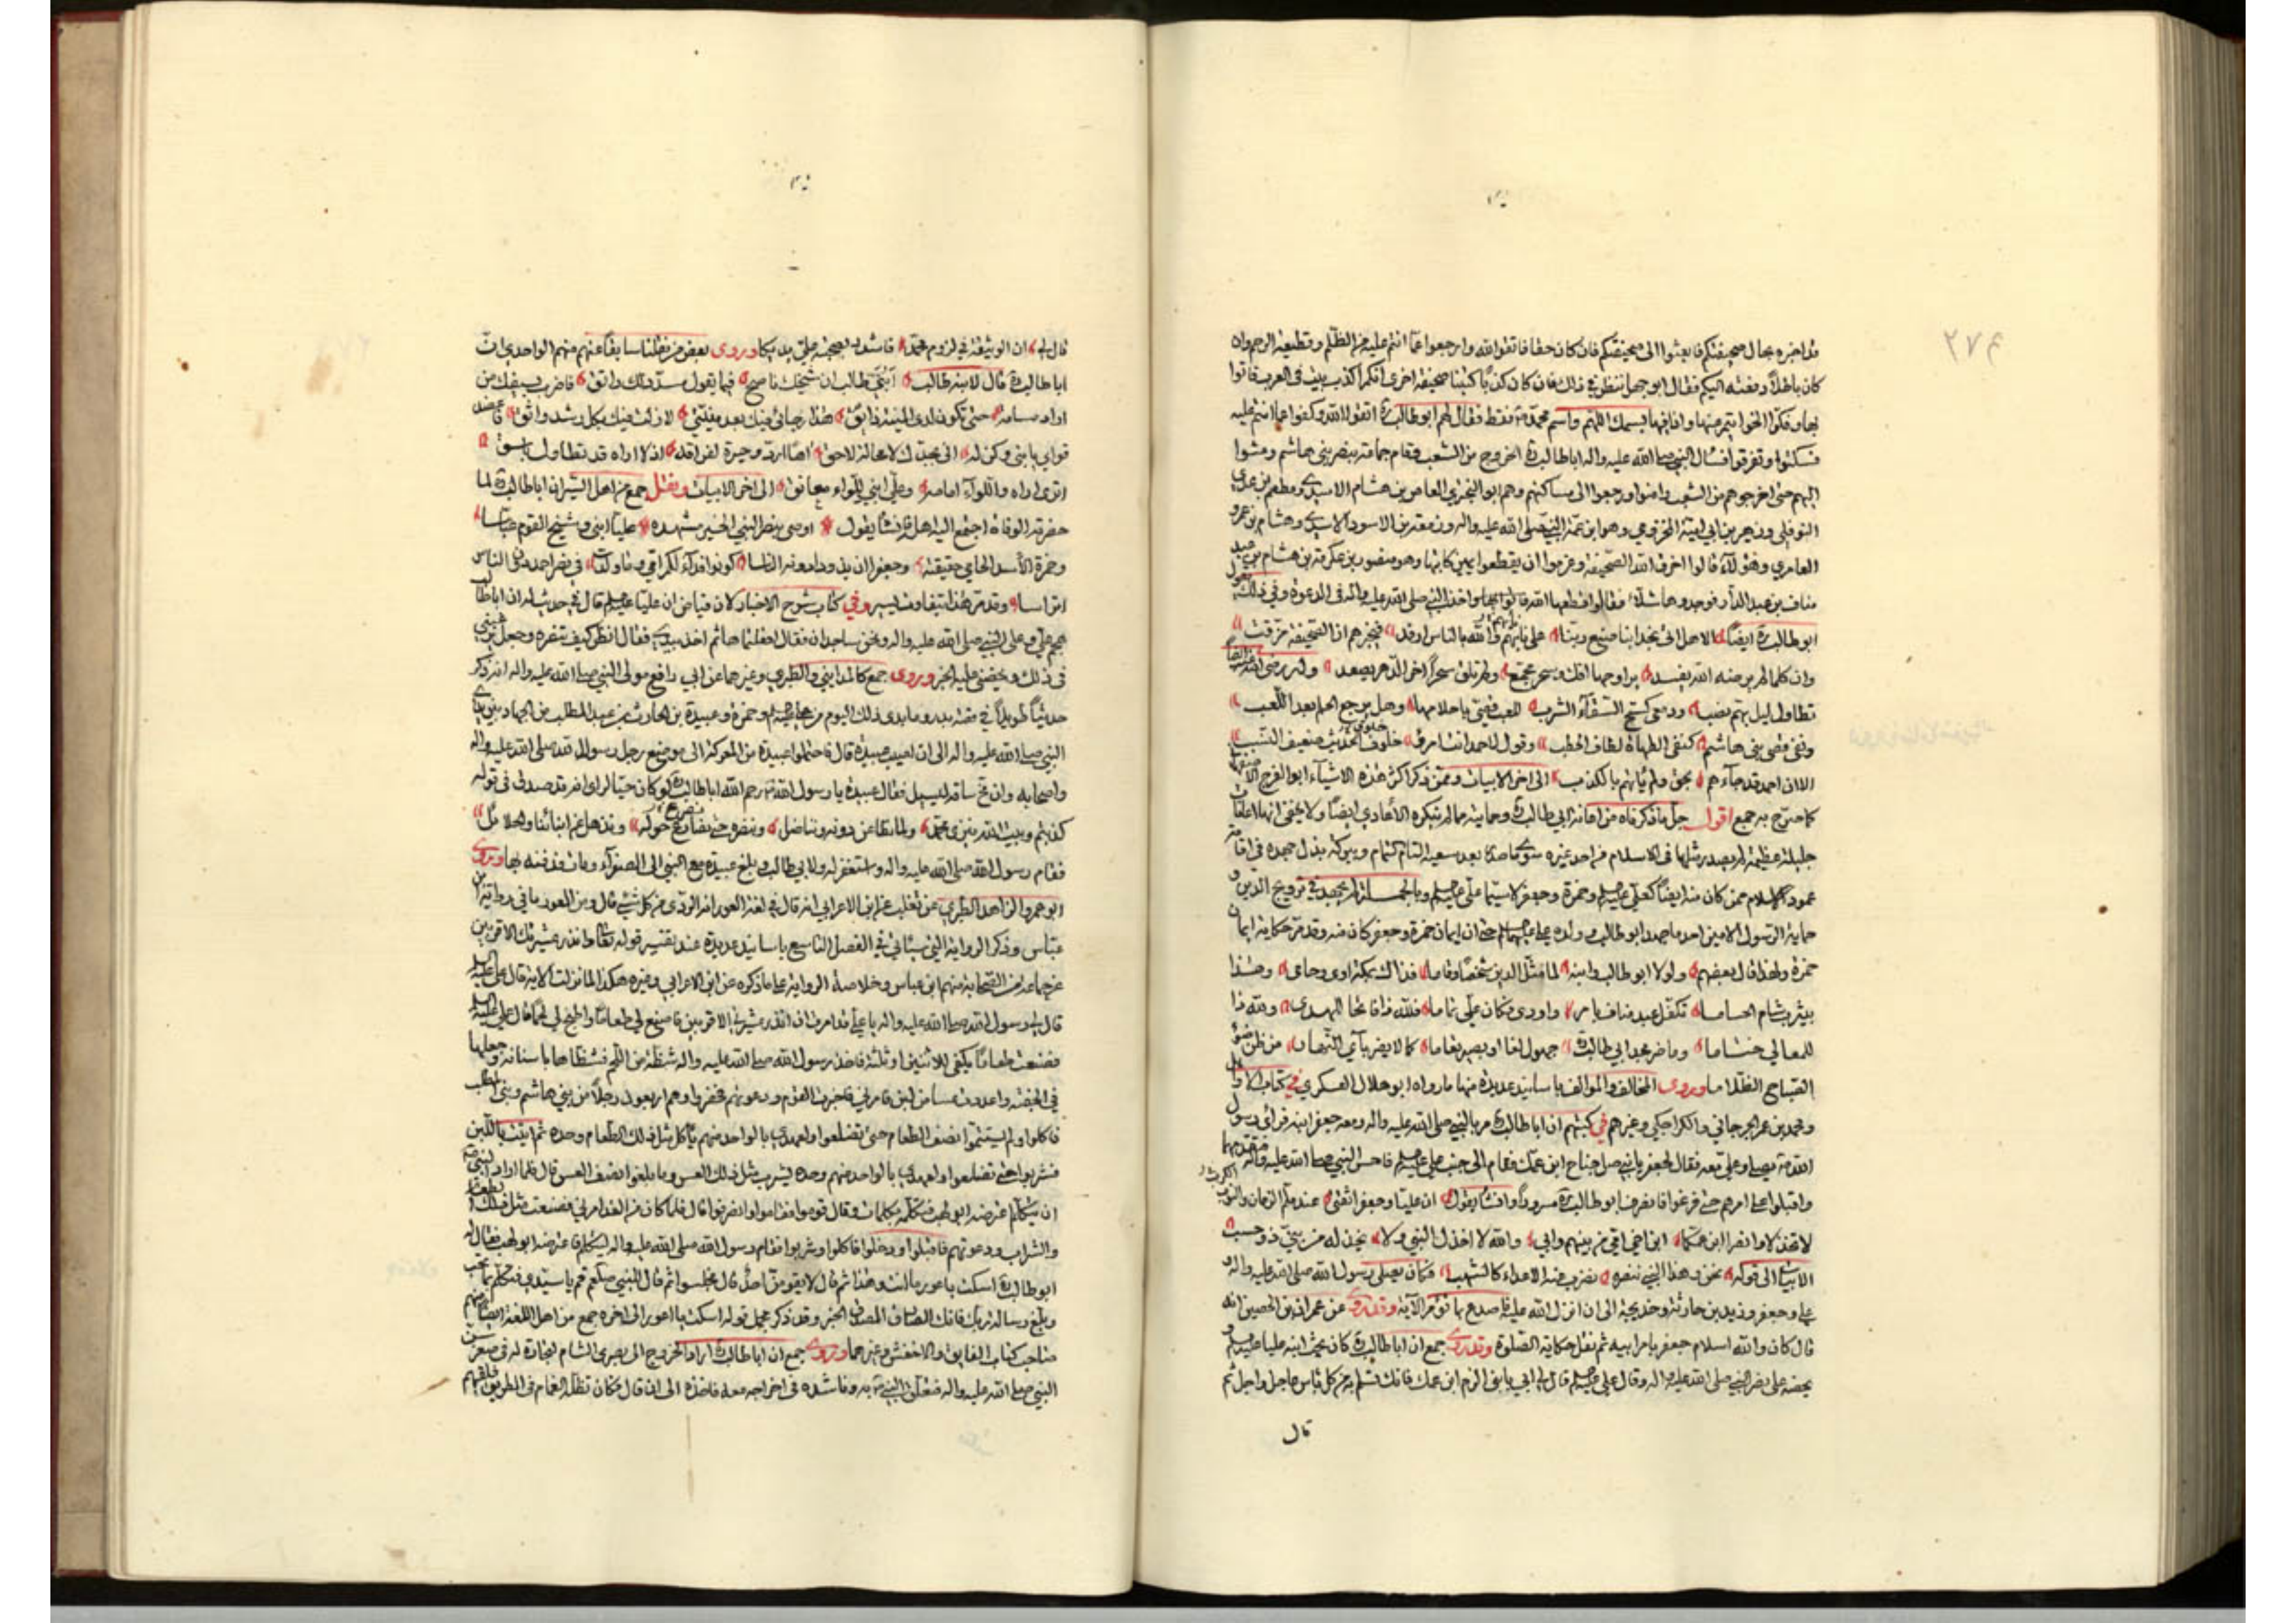 ٢٧٩
قد اخبره بحال صحيفتكم فابعثوا الى صحيفتكم فان كان حقا فاتقوا الله وارجعوا عما انتم عليه من الظلم وقطيعة الرحم وان
كان باطلا دفعته اليكم فقال ابو جهل ننظر في ذلك فان كان كذبا كتبنا صحيفة اخرى انكم اكذب بيت في العرب فاتوا
بها وفكوا الخواتيم منها واذا فيها بسمك اللهم واسم محمد فقط فقال لهم ابو طالب اتقوا الله وكفوا عما انتم عليه
فسكتوا وتفرقوا فسأل النبي صلى الله عليه واله ابا طالب الخروج من الشعب فقام جماعة بنصر بني هاشم ومشوا
اليهم حتى اخرجوهم من الشعب وامنوا ورجعوا الى مساكنهم وهم ابو البختري العاص بن هشام الاسدي ومطعم بن عدي
النوفلي وزهير بن ابي امية المخزومي وهو ابن عمة النبي صلى الله عليه واله وزمعة بن الاسود الاسدي وهشام بن عمرو
العامري وهؤلاء قالوا اخرق الله الصحيفة وعزموا ان يقطعوا يمين كاتبها وهو منصور بن عكرمة بن هشام بن عبد
مناف بن عبد الدار فوجدوها شلاء فقالوا قطعها الله واخذ النبي صلى الله عليه واله في الدعوة وفي ذلك يقول
ابو طالب ايضا الا هل اتى نجدا بنا صنيع ربنا على نايهم والله بالناس ارفد فيخبرهم ان الصحيفة مزقت
وان كلما لم يرضه الله يفسد يراوحها افك وسحر مجمع ولم تلق سحرا اخر الدهر يصعد وله رضي الله عنه ايضا
تطاول ليل بهم نصب ودمعي كسح السقاء السرب للعب قصي باحلامها وهل يرجع الحلم بعد اللعب
ونفي قصي بني هاشم كنفي الطهاة لطاف الحطب وقول لاحمد انت امرؤ خلوف الحديث ضعيف النسب
الا ان احمد قد جاءهم بحق ولم ياتهم بالكذب الى اخر الابيات وممن ذكر اكثر هذه الاشياء ابو الفرج الاصفهاني
كما صرح به جمع اقول جل ما ذكرناه من اعانة ابي طالب وحمايته مما لم ينكره الاعادي ايضا ولا يخفى انها اعانات
جليلة عظيمة لم يصدر مثلها في الاسلام من احد غيره سوى ما صدر بعد سعيه التام كتمام وببركة بذل جهده في اقامة
عمود الاسلام ممن كان منه ايضا كعلي عليه السلام وحمزة وجعفر لا سيما علي عليه السلام وبالجملة لم يجهد في ترويج الدين و
حماية الرسول الامين احد ما جهد ابو طالب وولده علي عليهما السلام حتى ان ايمان حمزة وجعفر كان منه وقد مر حكاية ايمان
حمزة ولهذا قال بعضهم ولولا ابو طالب وابنه لما مثل الدين شخصا وقاما فذاك بمكة اوى وحامى وهذا
بيثرب شام الحساما تكفل عبد مناف بامر واودى فكان علي تماما فلله ذا فاتحا للهدى ولله ذا
للمعالي ختاما وما ضر مجد ابي طالب جهول لغا او بصير تعاما كما لا يضر باي النهار من ظن ضوء
الصباح الظلاما وروى المخالف والموالف باسانيد عديدة منها ما رواه ابو هلال العسكري في كتاب الاوائل
ومحمد بن عمر الجرجاني والكراجكي وغيرهم في كتبهم ان ابا طالب مر بالنبي صلى الله عليه واله ومعه جعفر ابنه فراى رسول
الله يصلي وعلي معه فقال لجعفر يا بني صل جناح ابن عمك فقام الى جنب علي عليه السلام فاحس النبي صلى الله عليه واله فتقدمهما
واقبلوا على امرهم حتى فرغوا فانصرف ابو طالب مسرورا وانشا يقول ان عليا وجعفرا ثقتي عند ملم الزمان والنوب
لا تخذلا وانصرا ابن عمكما ابن اخي لامي من بينهم وابي والله لا اخذل النبي ولا يخذله من بني ذو حسب
الابيات الى قوله نحن وهذا النبي ننصره نضرب عنه الاعداء كالشهب فكان يصلي رسول الله صلى الله عليه واله و
علي وجعفر وزيد بن حارثة وخديجة الى ان انزل الله عليه فاصدع بما تؤمر الاية وقد روي عن عمران بن الحصين انه
قال كان والله اسلام جعفر بامر ابيه ثم نقل حكاية الصلوة وقد روى جمع ان ابا طالب كان يحث ابنه عليا عليه السلام و
يحضه على نصر النبي صلى الله عليه واله وقال علي عليه السلام قال لي ابي يا بني الزم ابن عمك فانك تسلم به من كل باس عاجل واجل ثم
قال
قال لي ان الوثيقة في لزوم محمد فاشدد بصحبته علي يديكا وروى بعض من نقلنا سابقا عنهم منهم الواحدي ان
ابا طالب قال لابنه طالب ابني طالب ان شيخك ناصح فيما يقول مسدد لك راتق فاضرب بسيفك من
اراد مساءة حتى تكون لدى المنية ذائق هذا رجائي فيك بعد منيتي لا زلت فيك بكل رشد واثق فاعضد
قواه يا بني وكن له اني بجدك لا محالة لاحق اها اردد حسرة لفراقه اذ لا اراه قد تطاول باسق
اترى اراه واللواء امامه وعلي ابني للواء معانق الى اخر الابيات ونقل جمع من اهل السير ان ابا طالب لما
حضرته الوفاة اجتمع اليه اهله فانشا يقول اوصي بنصر النبي الخير مشهده عليا ابني وشيخ القوم عباسا
وحمزة الاسد الحامي حقيقته وجعفرا ان يذودا دونه الناسا كونوا فداء لكم امي وما ولدت في نصر احمد دون الناس
اتراسا وقد مر هذا بتفاوت يسير وفي كتاب شرح الاخبار لابن فياض ان عليا عليه السلام قال في حديث له ان ابا طالب
هجم علي وعلى النبي صلى الله عليه واله ونحن ساجدان فقال افعلتماها ثم اخذ بيدي فقال انظر كيف تنصره وجعل يرغبني
في ذلك ويحضني عليه الخبر وروى جمع كالمدايني والطبري وغيرهما عن ابي رافع مولى النبي صلى الله عليه واله انه ذكر
حديثا طويلا في قصة بدر وما بدى ذلك اليوم من علي عليه السلام وحمزة وعبيدة بن الحارث بن عبد المطلب من الجهاد بين يدي
النبي صلى الله عليه واله الى ان اصيب عبيدة قال فاحتملوا عبيدة من المعركة الى موضع رجل رسول الله صلى الله عليه واله
واصحابه وان مخ ساقه ليسيل فقال عبيدة يا رسول الله رحم الله ابا طالب لو كان حيا لراى انه قد صدق في قوله
كذبتم وبيت الله نبزى محمدا ولما نطاعن دونه ونناضل وننصره حتى نصرع حوله ونذهل عن ابنائنا والحلائل
فقام رسول الله صلى الله عليه واله واستغفر له ولابي طالب وبلغ عبيدة مع النبي الى الصفراء ومات فدفنه بها وروى
ابو عمرو الزاهد الطبري عن ثعلب عن ابن الاعرابي انه قال في لغة العور انه الردي من كل شيء قال ومن العور ما في رواية ابن
عباس وذكر الرواية التي ستاتي في الفصل التاسع باسانيد عديدة عند تفسير قوله تعالى وانذر عشيرتك الاقربين
عن جماعة من الصحابة منهم ابن عباس وخلاصة الرواية على ما ذكره عن ابن الاعرابي وغيره هكذا لما نزلت الاية قال علي عليه السلام
قال لي رسول الله صلى الله عليه واله يا علي قد امرت ان انذر عشيرتي الاقربين فاصنع لي طعاما واطبخ لي لحما قال علي عليه السلام
فصنعت طعاما يكفي لاثنين او ثلثة فاخذ رسول الله صلى الله عليه واله شظية من اللحم فشظاها باسنانه وجعلها
في الجفنة واعددت عسا من لبن فامرني فاحضرت القوم ودعوتهم فحضروا وهم اربعون رجلا من بني هاشم وبني المطلب
فاكلوا ولم يستتموا نصف الطعام حتى تضلعوا ولعهدي بالواحد منهم ياكل مثل ذلك الطعام وحده ثم اتيت باللبن
فشربوا حتى تضلعوا ولعهدي بالواحد منهم وحده يشرب مثل ذلك العس وما بلغوا نصف العس قال فلما اراد النبي
ان يتكلم اعترضه ابو لهب فتكلم بكلمات وقال قوموا فقاموا وانصرفوا قال فلما كان من الغد امرني فصنعت مثل ذلك الطعام
والشراب ودعوتهم فاقبلوا ودخلوا فاكلوا وشربوا فقام رسول الله صلى الله عليه واله ليتكلم فاعترضه ابو لهب فقال له
ابو طالب اسكت يا عور ما انت وهذا ثم قال لا يقومن احد قال فجلسوا ثم قال للنبي صلعم قم يا سيدي فتكلم بما تحب
وبلغ رسالة ربك فانك الصادق المصدق الخبر وقد ذكر مجمل قوله اسكت يا اعور الى اخره جمع من اهل اللغة ايضا منهم
صاحب كتاب الفايق والاخفش وغيرهما وروى جمع ان ابا طالب اراد الخروج الى بصرى الشام لتجارة له في صغر سن
النبي صلى الله عليه واله فتعلق النبي به وناشده في اخراجه معه فاخذه الى ان قال فكان تظله الغمام في الطريق فلقيهم